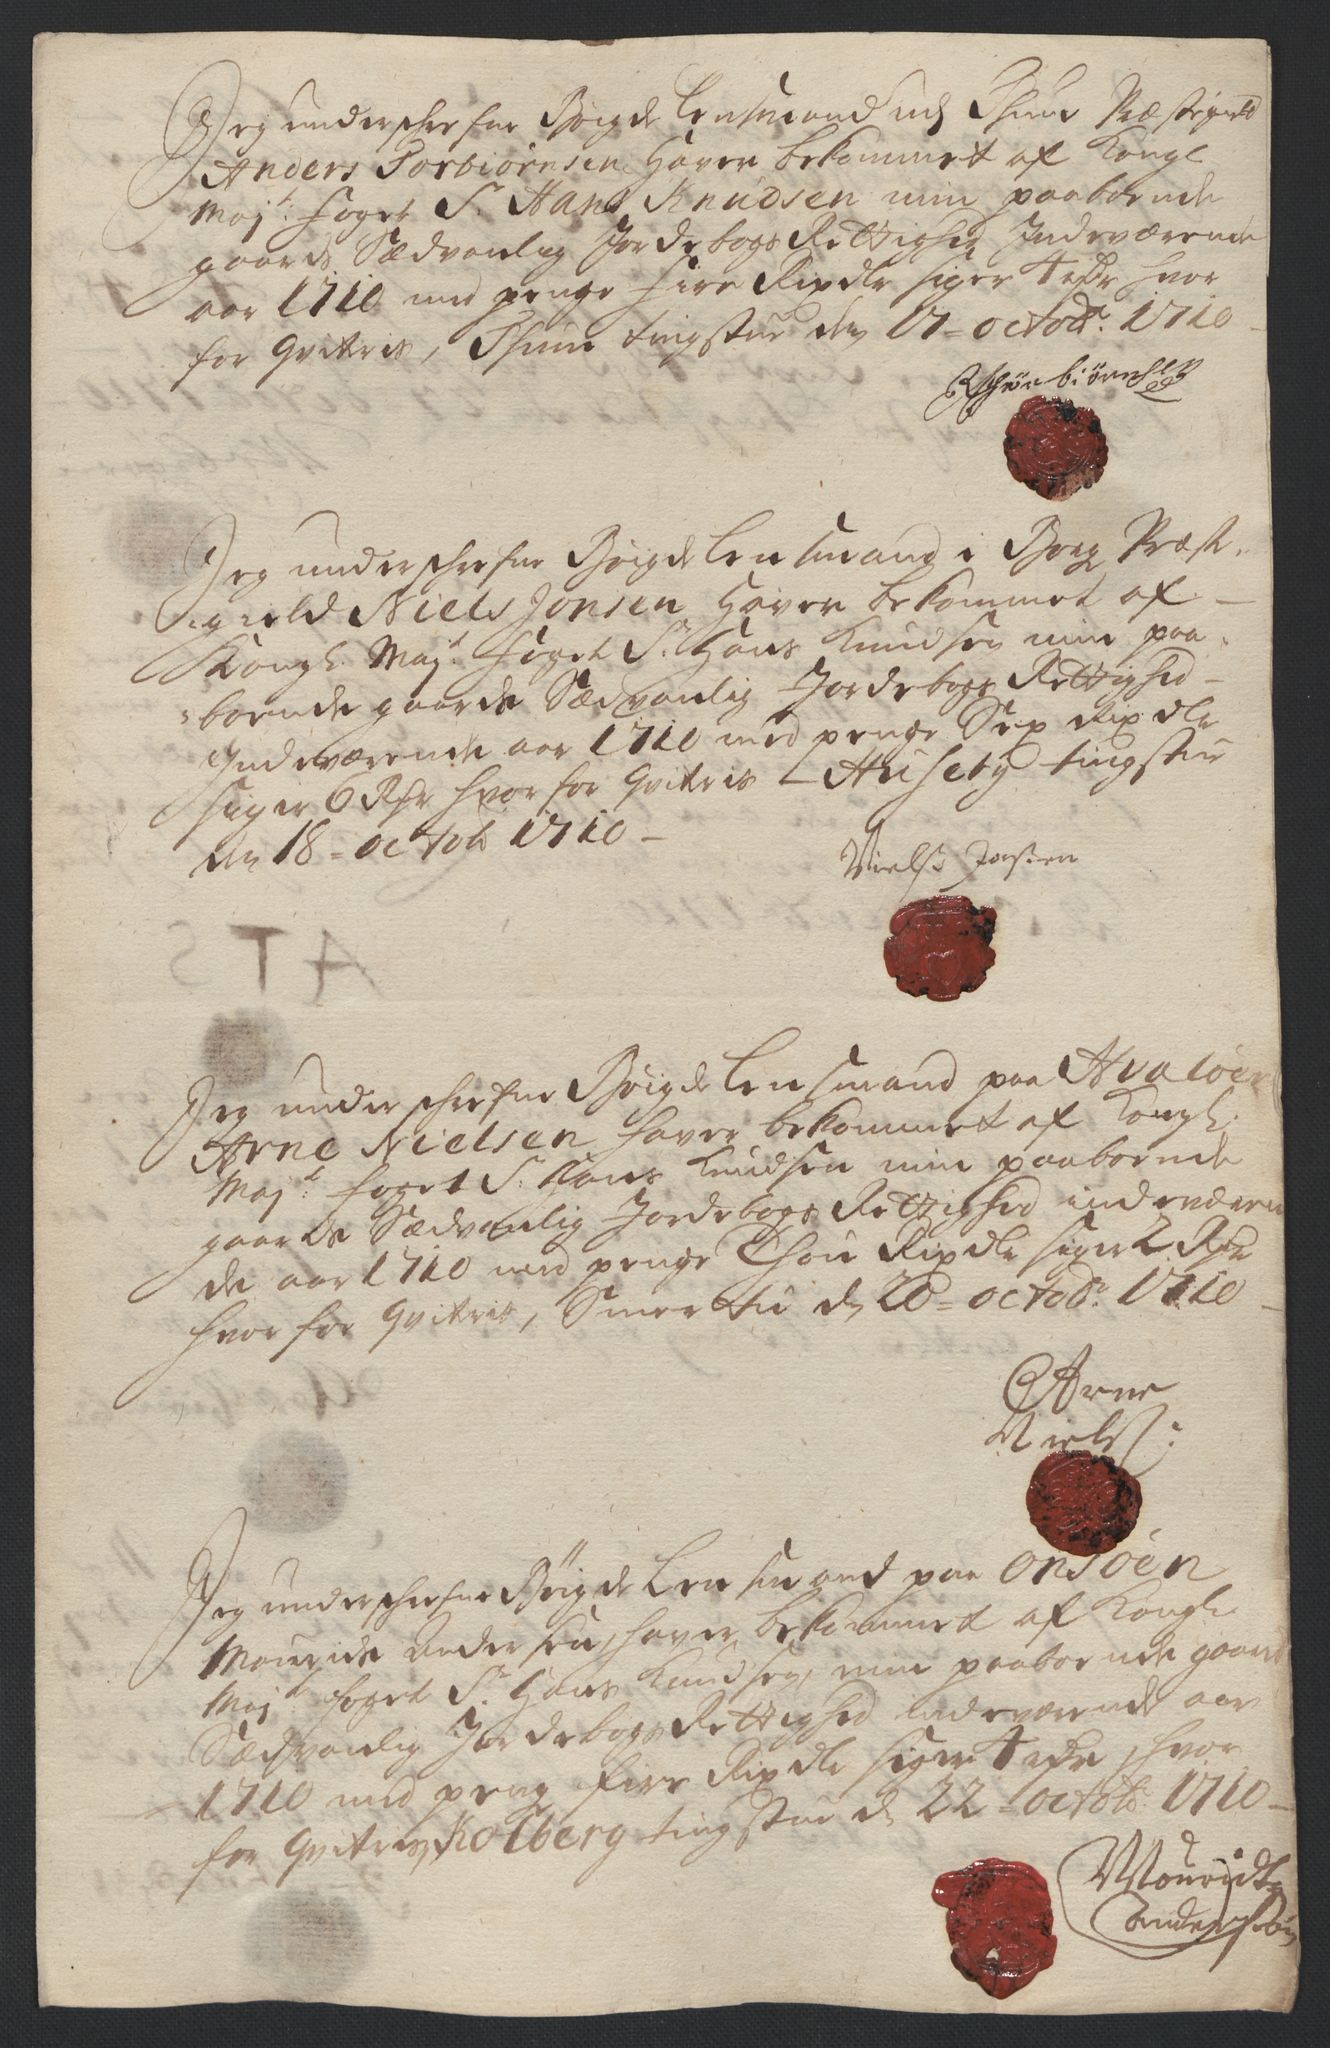 Jeg underschrefne Bøigde Lensmand udj Thune Præstegield
Anders Torbiørnsen Haver bekommet af Kongl
Mayt: foget Sr Hans Knudsen min paaboende
gaards Sædvanlig Jordebogs Rettighed Indeværende
aar 1710 med penge fire Rixdlr siger 4 rdr hvor
for qviteris, Thune tingstue den 17 = octobr. 1710 -
Jeg underschrefne Bøigde Lensmand i Borg Præste-
gield Niels Jonsen Haver bekommet af -
Kongl. Mayt. foget Sr. Hans Knudsen min paa-
boende gaards Sædvanlig Jordebogs Rettighed -
Indeværende aar 1710 med penge Sex Rixdlr
siger 6 Rdr hvorfor qviteris Huseby tingstue
den 18 = octob 1710 -
Niels Jonsen
A T S
Jeg underschrefne Bøigde Lensmand paa Hvaløer
Arne Nielsen haver bekommet af Kongl.
Mayt. foget Sr. Hans Knudsen min paaboende
gaards Sædvanlig Jordebogs Rettighed indeværen
de aar 1710 med penge Thou Rixdlr siger 2 Rdr
hvorfor qviteris, Smertue d. 20 = octobr. 1710 -
Arne
Niels:
Jeg underschrefne Bøigde Lensmand paa Onsøen
Mourids Andersen, haver bekommet af Kongl.
Mayt foget Sr. Hans Knudsen, min paaboende gaards
Sædvanlig Jordebogs Rettighed indeværende aar
1710 med peng fire Rixdlr siger 4 rdr, hvor
for qviteris, Kolberg tingstue d. 22 = octob: 1710 -
Mourids
Andersøn